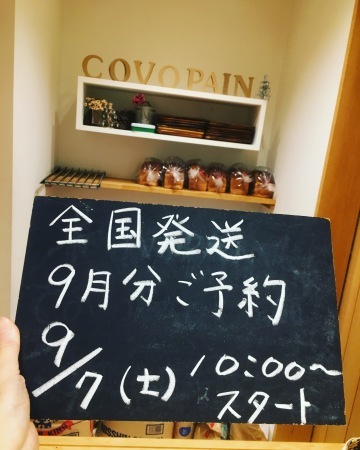 COVOPAIN
全国発送
9月分ご予約
9/7(土) 10:00〜
スタート